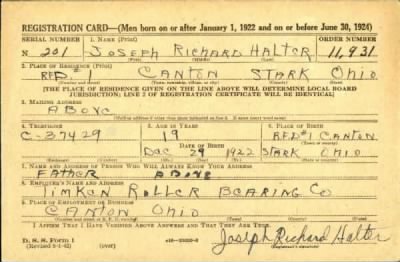 REGISTRATION CARD—(Men born on or after January 1, 1922 and on or before June 30, 1924)
SERIAL NUMBER 1. NAME (Print) ORDER NUMBER
N 201 JOSEPH RICHARD HALTER 11,931
(First) (Middle) (Last)
2. PLACE OF RESIDENCE (Print)
RFD #1 CANTON STARK OHIO
(Number and street) (Town, township, village, or city) (County) (State)
[THE PLACE OF RESIDENCE GIVEN ON THE LINE ABOVE WILL DETERMINE LOCAL BOARD
JURISDICTION; LINE 2 OF REGISTRATION CERTIFICATE WILL BE IDENTICAL]
3. MAILING ADDRESS
ABOVE
[Mailing address if other than place indicated on line 2. If same insert word same]
4. TELEPHONE 5. AGE IN YEARS 6. PLACE OF BIRTH
C-37429 19 R.F.D #1 CANTON
DATE OF BIRTH (Town or county)
DEC 29 1922 STARK OHIO
(Exchange) (Number) (Mo.) (Day) (Yr.) (State or country)
7. NAME AND ADDRESS OF PERSON WHO WILL ALWAYS KNOW YOUR ADDRESS
FATHER ABOVE
8. EMPLOYER'S NAME AND ADDRESS
TIMKEN ROLLER BEARING CO
9. PLACE OF EMPLOYMENT OR BUSINESS
CANTON OHIO
(Number and street or R. F. D. number) (Town) (County) (State)
I AFFIRM THAT I HAVE VERIFIED ABOVE ANSWERS AND THAT THEY ARE TRUE.
D. S. S. FORM 1
(Revised 6-1-42) (over) Joseph Richard Halter
(Registrant's signature)